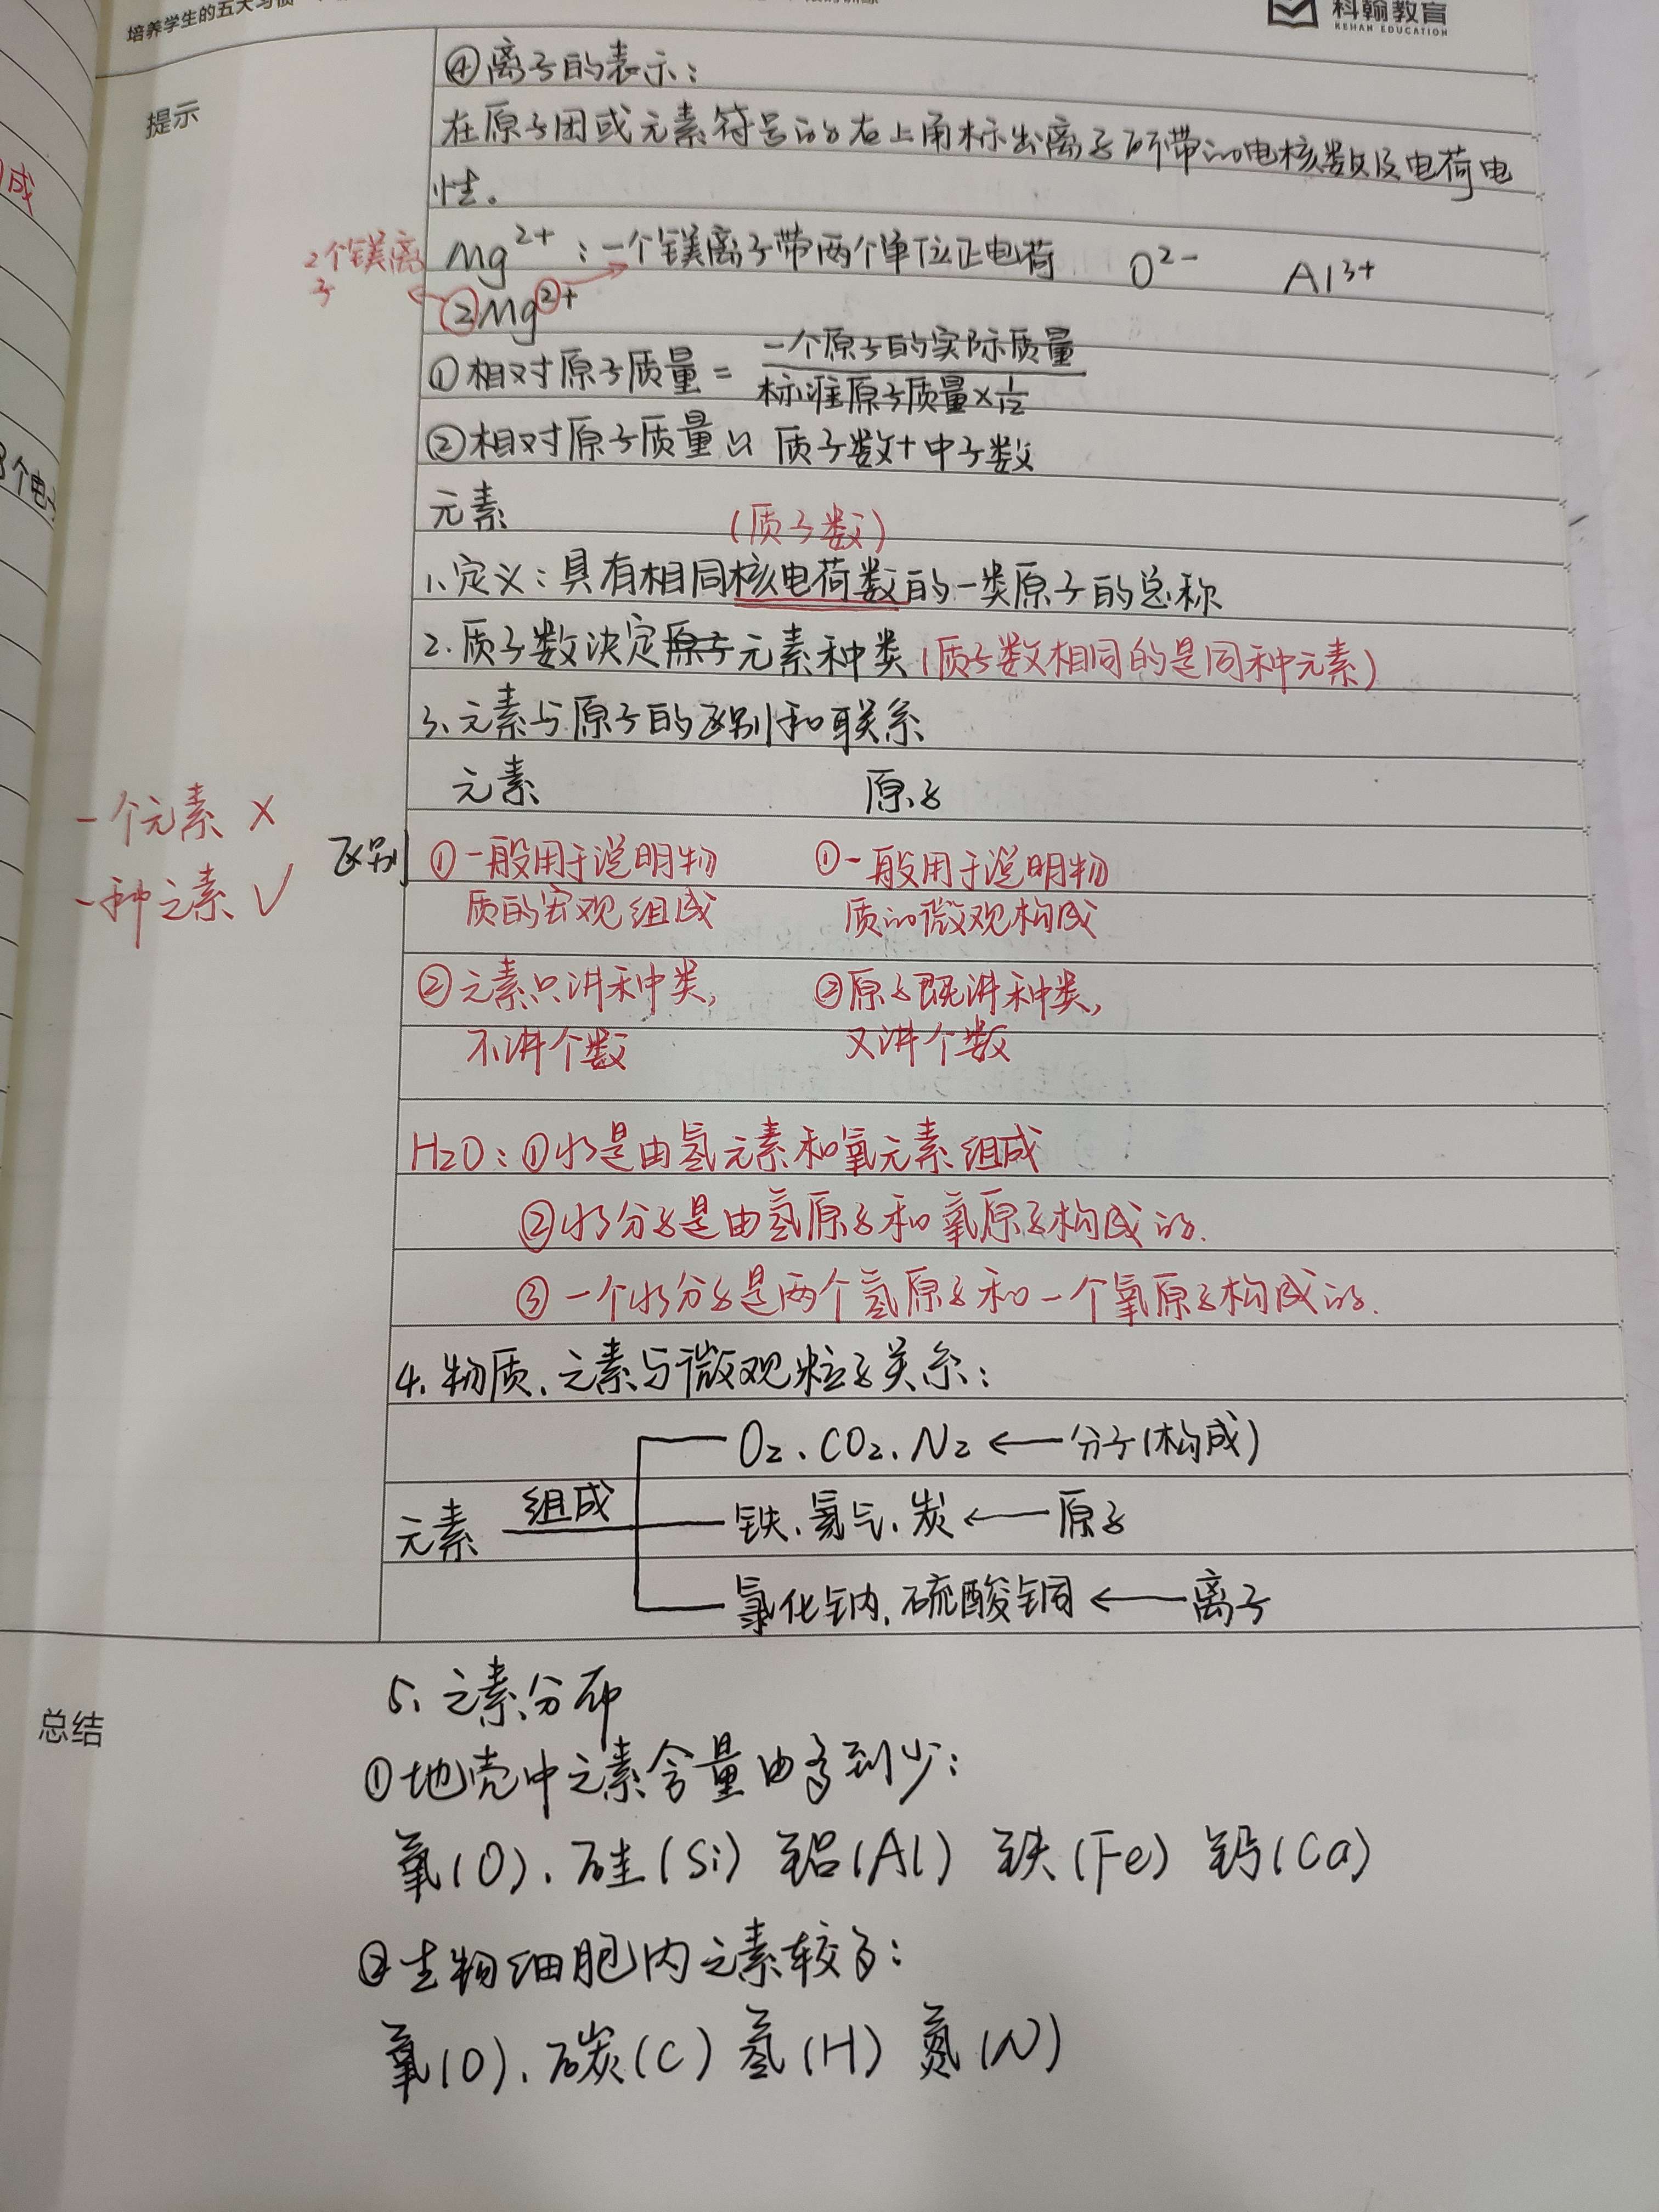 培养学生的五大习惯
科翰教育
KEHAN EDUCATION
提示
成
3个电
④离子的表示:
在原子团或元素符号的右上角标出离子所带的电核数及电荷电
性。
2个镁离
子
Mg²⁺:一个镁离子带两个单位正电荷 O²⁻ Al³⁺
2Mg²⁺
①相对原子质量 = 一个原子的实际质量
标准原子质量×1/12
②相对原子质量≈质子数+中子数
元素
(质子数)
1.定义:具有相同核电荷数的一类原子的总称
2.质子数决定原子元素种类(质子数相同的是同种元素)
3.元素与原子的区别和联系
元素 原子
一个元素 ×
一种元素 ✓
区别 ①一般用于说明物 ①一般用于说明物
质的宏观组成 质的微观构成
②元素只讲种类, ②原子既讲种类,
不讲个数 又讲个数
H₂O:①水是由氢元素和氧元素组成
②水分子是由氢原子和氧原子构成的.
③一个水分子是两个氢原子和一个氧原子构成的.
4.物质、元素与微观粒子关系:
O₂、CO₂、N₂ ← 分子(构成)
元素 组成 铁、氦气、炭 ← 原子
氯化钠、硫酸铜 ← 离子
总结
5、元素分布
①地壳中元素含量由多到少:
氧(O)、硅(Si) 铝(Al) 铁(Fe) 钙(Ca)
②生物细胞内元素较多:
氧(O)、碳(C) 氢(H) 氮(N)